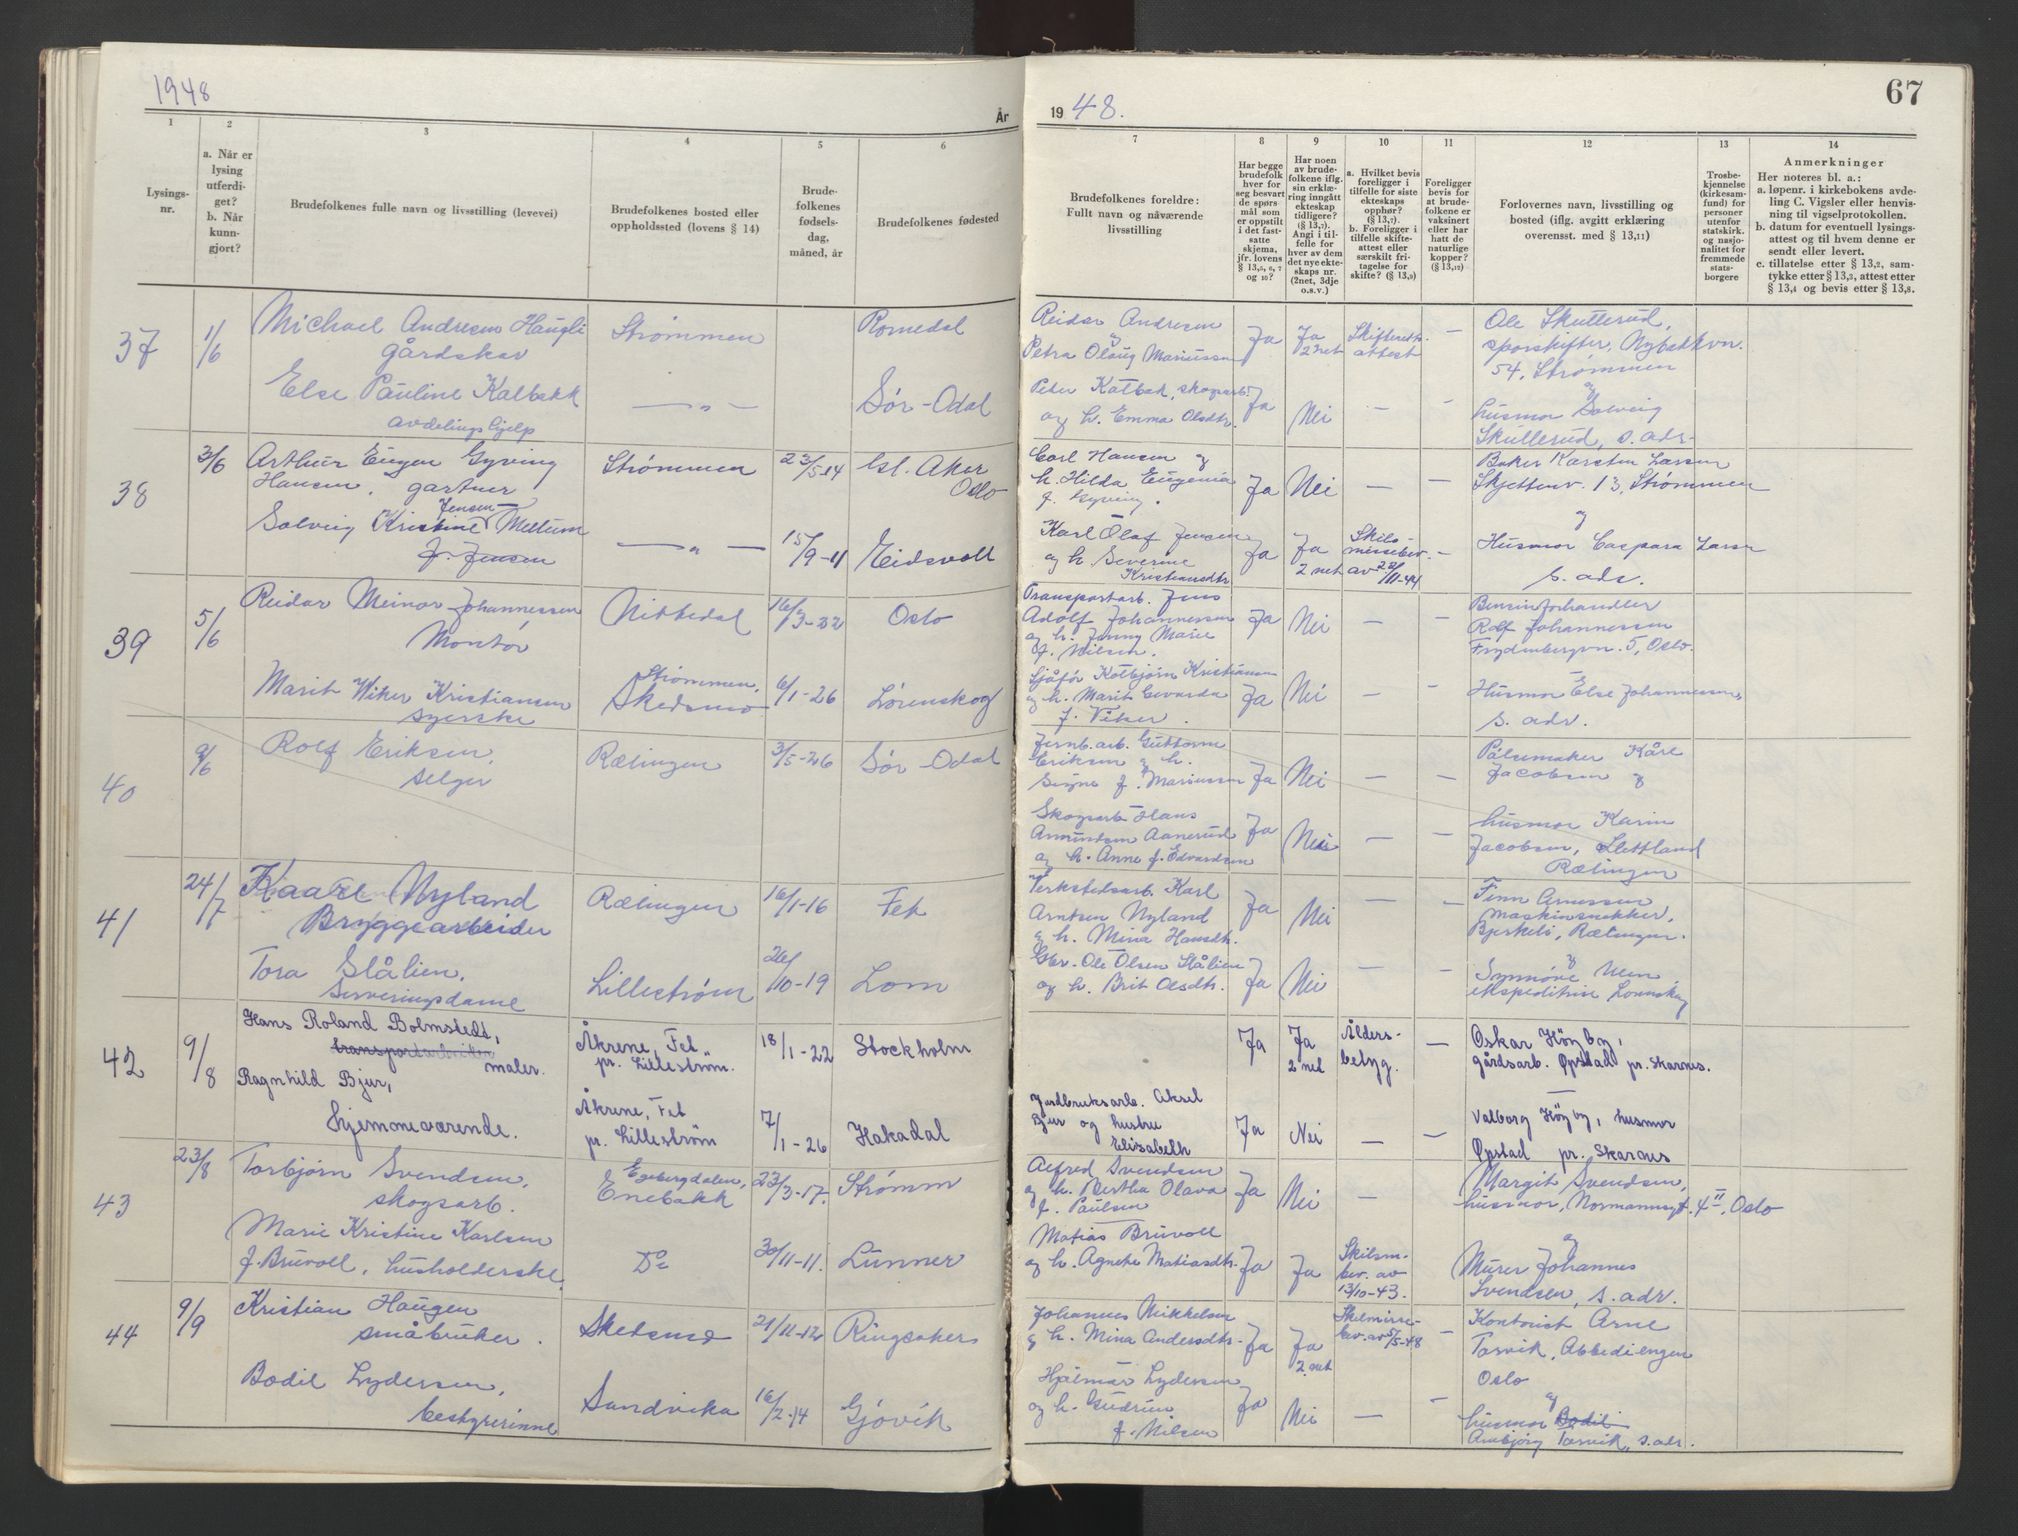 1948
År
1
2
3
4
5
6
Lysings-
nr.
a. Når er
lysing
utferdi-
get?
b. Når
kunn-
gjort?
Brudefolkenes fulle navn og livsstilling (levevei)
Brudefolkenes bosted eller
oppholdssted (lovens § 14)
Brude-
folkenes
fødsels-
dag,
måned, år
Brudefolkenes fødested
37
1/6
Michael Andresen Haugli
gårdskar
Strømmen
Romedal
Else Pauline Kalbakk
avdelingshjelp
— " —
Sør-Odal
38
3/6
Arthur Eugen Gyving
Hansen, gartner
Strømmen
23/5-14
Ø. Aker
Oslo
Jensen
Solveig Kristine Mellum
f. Jensen
— " —
15/9-11
Eidsvoll
39
5/6
Reidar Meinar Johannessen
Montør
Nittedal
16/3-22
Oslo
Marit Wiker Kristiansen
syerske
Strømmen,
Skedsmo
6/1-26
Lørenskog
40
9/6
Rolf Eriksen,
selger
Rælingen
3/5-26
Sør-Odal
41
24/7
Kaare Nyland
Bryggearbeider
Rælingen
16/1-16
Fet
Tora Slålien,
Serveringsdame
Lillestrøm
26/10-19
Lom
42
9/8
Hans Roland Bolmstedt,
transportarbeider
maler.
Åkrene, Fet
pr. Lilleström.
18/1-22
Stockholm
Ragnhild Bjur,
Hjemmeværende.
Åkrene, Fet
pr. Lilleström
7/1-26
Hakadal
43
23/8
Torbjørn Svendsen,
skogsarb.
Egebergdalen,
Enebakk
23/3-17.
Strømm
Marie Kristine Karlsen
f. Brüvoll, husholderske,
Do
30/11-11.
Lunner
44
9/9
Kristian Haugen
småbruker.
Skedsmo
21/11-12
Ringsaker
Bodil Lydersen,
bestyrerinne
Sandvika
16/2-14
Gjøvik
67
19 48.
7
8
9
10
11
12
13
14
Brudefolkenes foreldre:
Fullt navn og nåværende
livsstilling
Har begge
brudefolk
hver for
seg besvart
de spørs-
mål som
er oppstilt
i det fast-
satte
skjema,
jfr. lovens
§ 13,5, 6, 7
og 10?
Har noen
av brude-
folkene iflg.
sin erklæ-
ring inngått
ekteskap
tidligere?
(§ 13,7).
Angi i til-
felle for
hver av dem
det nye ekte-
skaps nr.
(2net, 3dje
o.s.v.)
a. Hvilket bevis
foreligger i
tilfelle for siste
ekteskaps
opphør?
(§ 13,7).
b. Foreligger i
tilfelle skifte-
attest eller
særskilt fri-
tagelse for
skifte? (§ 13,9)
Foreligger
bevis for
at brude-
folkene er
vaksinert
eller har
hatt de
naturlige
kopper?
(§ 13,12)
Forlovernes navn, livsstilling og
bosted (iflg. avgitt erklæring
overensst. med § 13,11)
Trosbe-
kjennelse
(kirkesam-
fund) for
personer
utenfor
statskirk.
og nasjo-
nalitet for
fremmede
stats-
borgere
Anmerkninger
Her noteres bl. a.:
a. løpenr. i kirkebokens avde-
ling C. Vigsler eller henvis-
ning til vigselprotokollen.
b. datum for eventuell lysings-
attest og til hvem denne er
sendt eller levert.
c. tillatelse etter § 13,2, sam-
tykke etter § 13,3, attest etter
§ 13,4 og bevis etter § 13,8.
Reidar Andresen
og
Petra Olaug Mariussen
Ja
Ja
2 net
Skifteretts-
attest
—
Ole Skullerud,
sporskifter, Nybakkvn.
54, Strømmen
Peter Kalbak, skogsarb.
og h. Emma Olsdtr.
Ja
Nei
—
—
og
husmor Solveig
Skullerud, s. adr.
Carl Hansen og
h. Hilda Eugenia
f. Gyving.
Ja
Nei
—
—
Baker Karsten Larsen
Skjettenv. 13, Strømmen
Karl Olaf Jensen
og h. Severine
Kristiansdtr
Ja
Ja
2 net
Skils-
missebev.
av 22/11-44
—
og
Husmor Caspara Larsen
s. adr.
Transportarb. Jens
Adolf Johannessen
og h. Jenny Marie
f. Nilsen.
Ja
Nei
—
—
Bensinforhandler
Rolf Johannessen
Frydenbergvn. 5, Oslo.
Sjåfør Kolbjørn Kristiansen
og h. Marit Edvarda
f. Viker.
Ja
Nei
—
—
Husmor Else Johannessen,
s. adr.
Jernb.arb. Guttorm
Eriksen og h.
Signe f. Mariussen
Ja
Nei
—
—
Pølsemaker Kåre
Jacobsen og
Skogsarb. Hans
Amundsen Aanerud
og h. Anne f. Edvardsen
Ja
Nei
—
—
husmor Karin
Jacobsen, Slettland
Rælingen
Verkstedsarb. Karl
Arntsen Nyland
og h. Mina Hansdtr.
Ja
Nei
—
—
Finn Arnessen
maskinsnekker,
Bjerkeli, Rælingen.
Gbr. Ole Olsen Slålien
og h. Brit Olsdtr.
Ja
Nei
—
—
og
Synnøve Moen
ekspeditrise Lørenskog
Ja
Ja
2 net
Ålders-
betyg.
—
Oskar Höyby,
gårdsarb. Øpstad pr. Skarnes.
Jordbruksarb. Aksel
Bjur og hustru
Elisabeth
Ja
Nei
—
—
Valborg Höyby, husmor
Øpstad pr. Skarnes
Alfred Svendsen
og h. Bertha Olava
f. Paulsen
Ja
Nei
—
Margit Svendsen,
husmor, Normannsgt. 4 II, Oslo
Matias Brüvoll
og h. Agnete Matiasdtr.
Ja
Ja
Skilsm-
bev. av
13/10-43.
og
Murer Johannes
Svendsen, s. adr.
Johannes Mikkelsen
og h. Mina Andersdtr.
Ja
Ja
2 net
Skilmisse-
bev. av 5/5-48
—
Kontorist Arne
Torvik, Abbediengen
Oslo
Hjalmar Lydersen
og h. Gudrun
f. Nilsen
Ja
Nei
—
—
og
husmor Bodil
Ambjørg Torvik, s.adr.